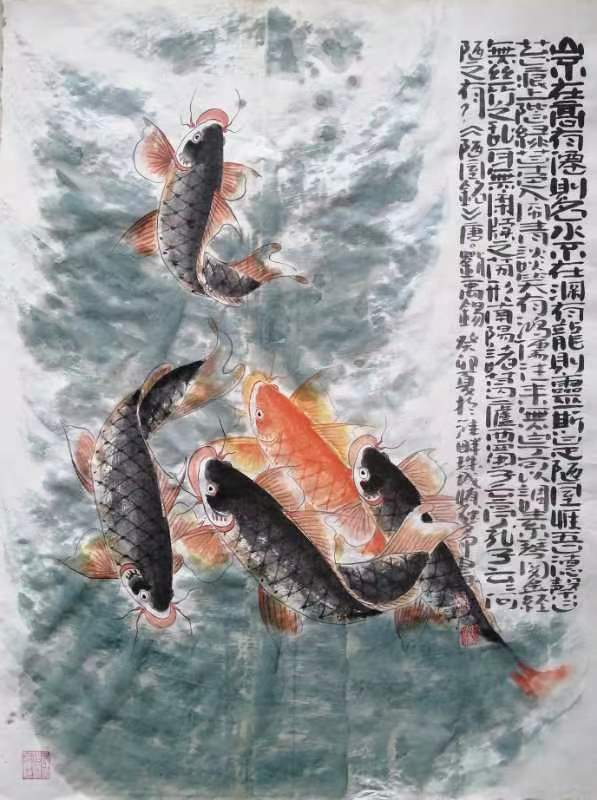 山不在高有僊則名水不在深有龍則靈斯是陋室惟吾德馨
苔痕上階綠草色入帘青談笑有鴻儒往來無白丁可以調素琴閱金經
無絲竹之亂耳無案牘之勞形南陽諸葛廬西蜀子云亭孔子云何
陋之有？《陋室銘》唐。劉禹錫 癸卯夏於淮畔珠城